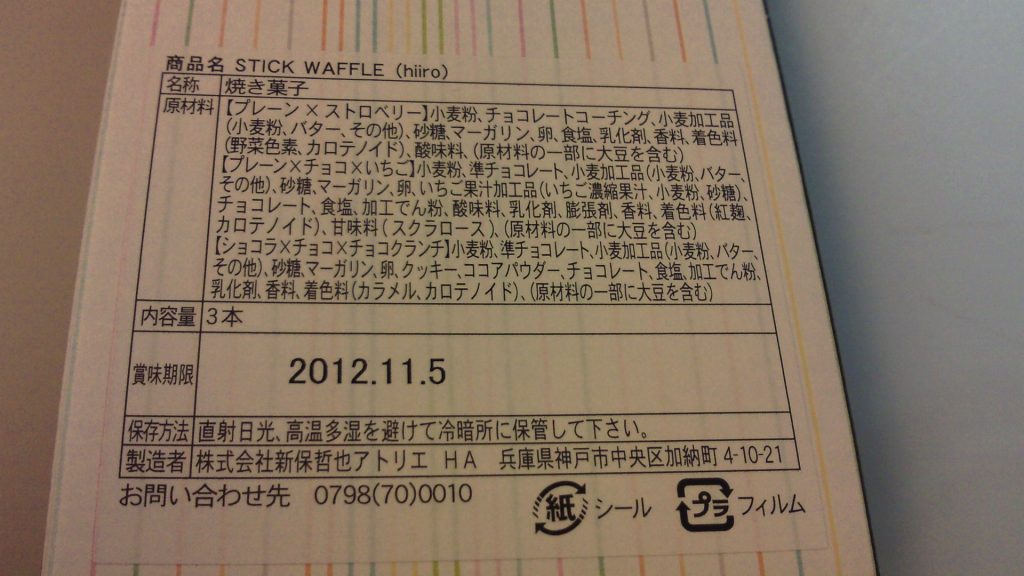 商品名 STICK WAFFLE (hiiro)
名称 焼き菓子
原材料 【プレーン×ストロベリー】小麦粉、チョコレートコーチング、小麦加工品
(小麦粉、バター、その他)、砂糖、マーガリン、卵、食塩、乳化剤、香料、着色料
(野菜色素、カロテノイド)、酸味料、(原材料の一部に大豆を含む)
【プレーン×チョコ×いちご】小麦粉、準チョコレート、小麦加工品(小麦粉、バター、
その他)、砂糖、マーガリン、卵、いちご果汁加工品(いちご濃縮果汁、小麦粉、砂糖)、
チョコレート、食塩、加工でん粉、酸味料、乳化剤、膨張剤、香料、着色料(紅麹、
カロテノイド)、甘味料(スクラロース)、(原材料の一部に大豆を含む)
【ショコラ×チョコ×チョコクランチ】小麦粉、準チョコレート、小麦加工品(小麦粉、バター、
その他)、砂糖、マーガリン、卵、クッキー、ココアパウダー、チョコレート、食塩、加工でん粉、
乳化剤、香料、着色料(カラメル、カロテノイド)、(原材料の一部に大豆を含む)
内容量 3本
賞味期限 2012.11.5
保存方法 直射日光、高温多湿を避けて冷暗所に保管して下さい。
製造者 株式会社新保哲也アトリエ HA 兵庫県神戸市中央区加納町 4-10-21
お問い合わせ先 0798(70)0010 紙 シール プラ フィルム